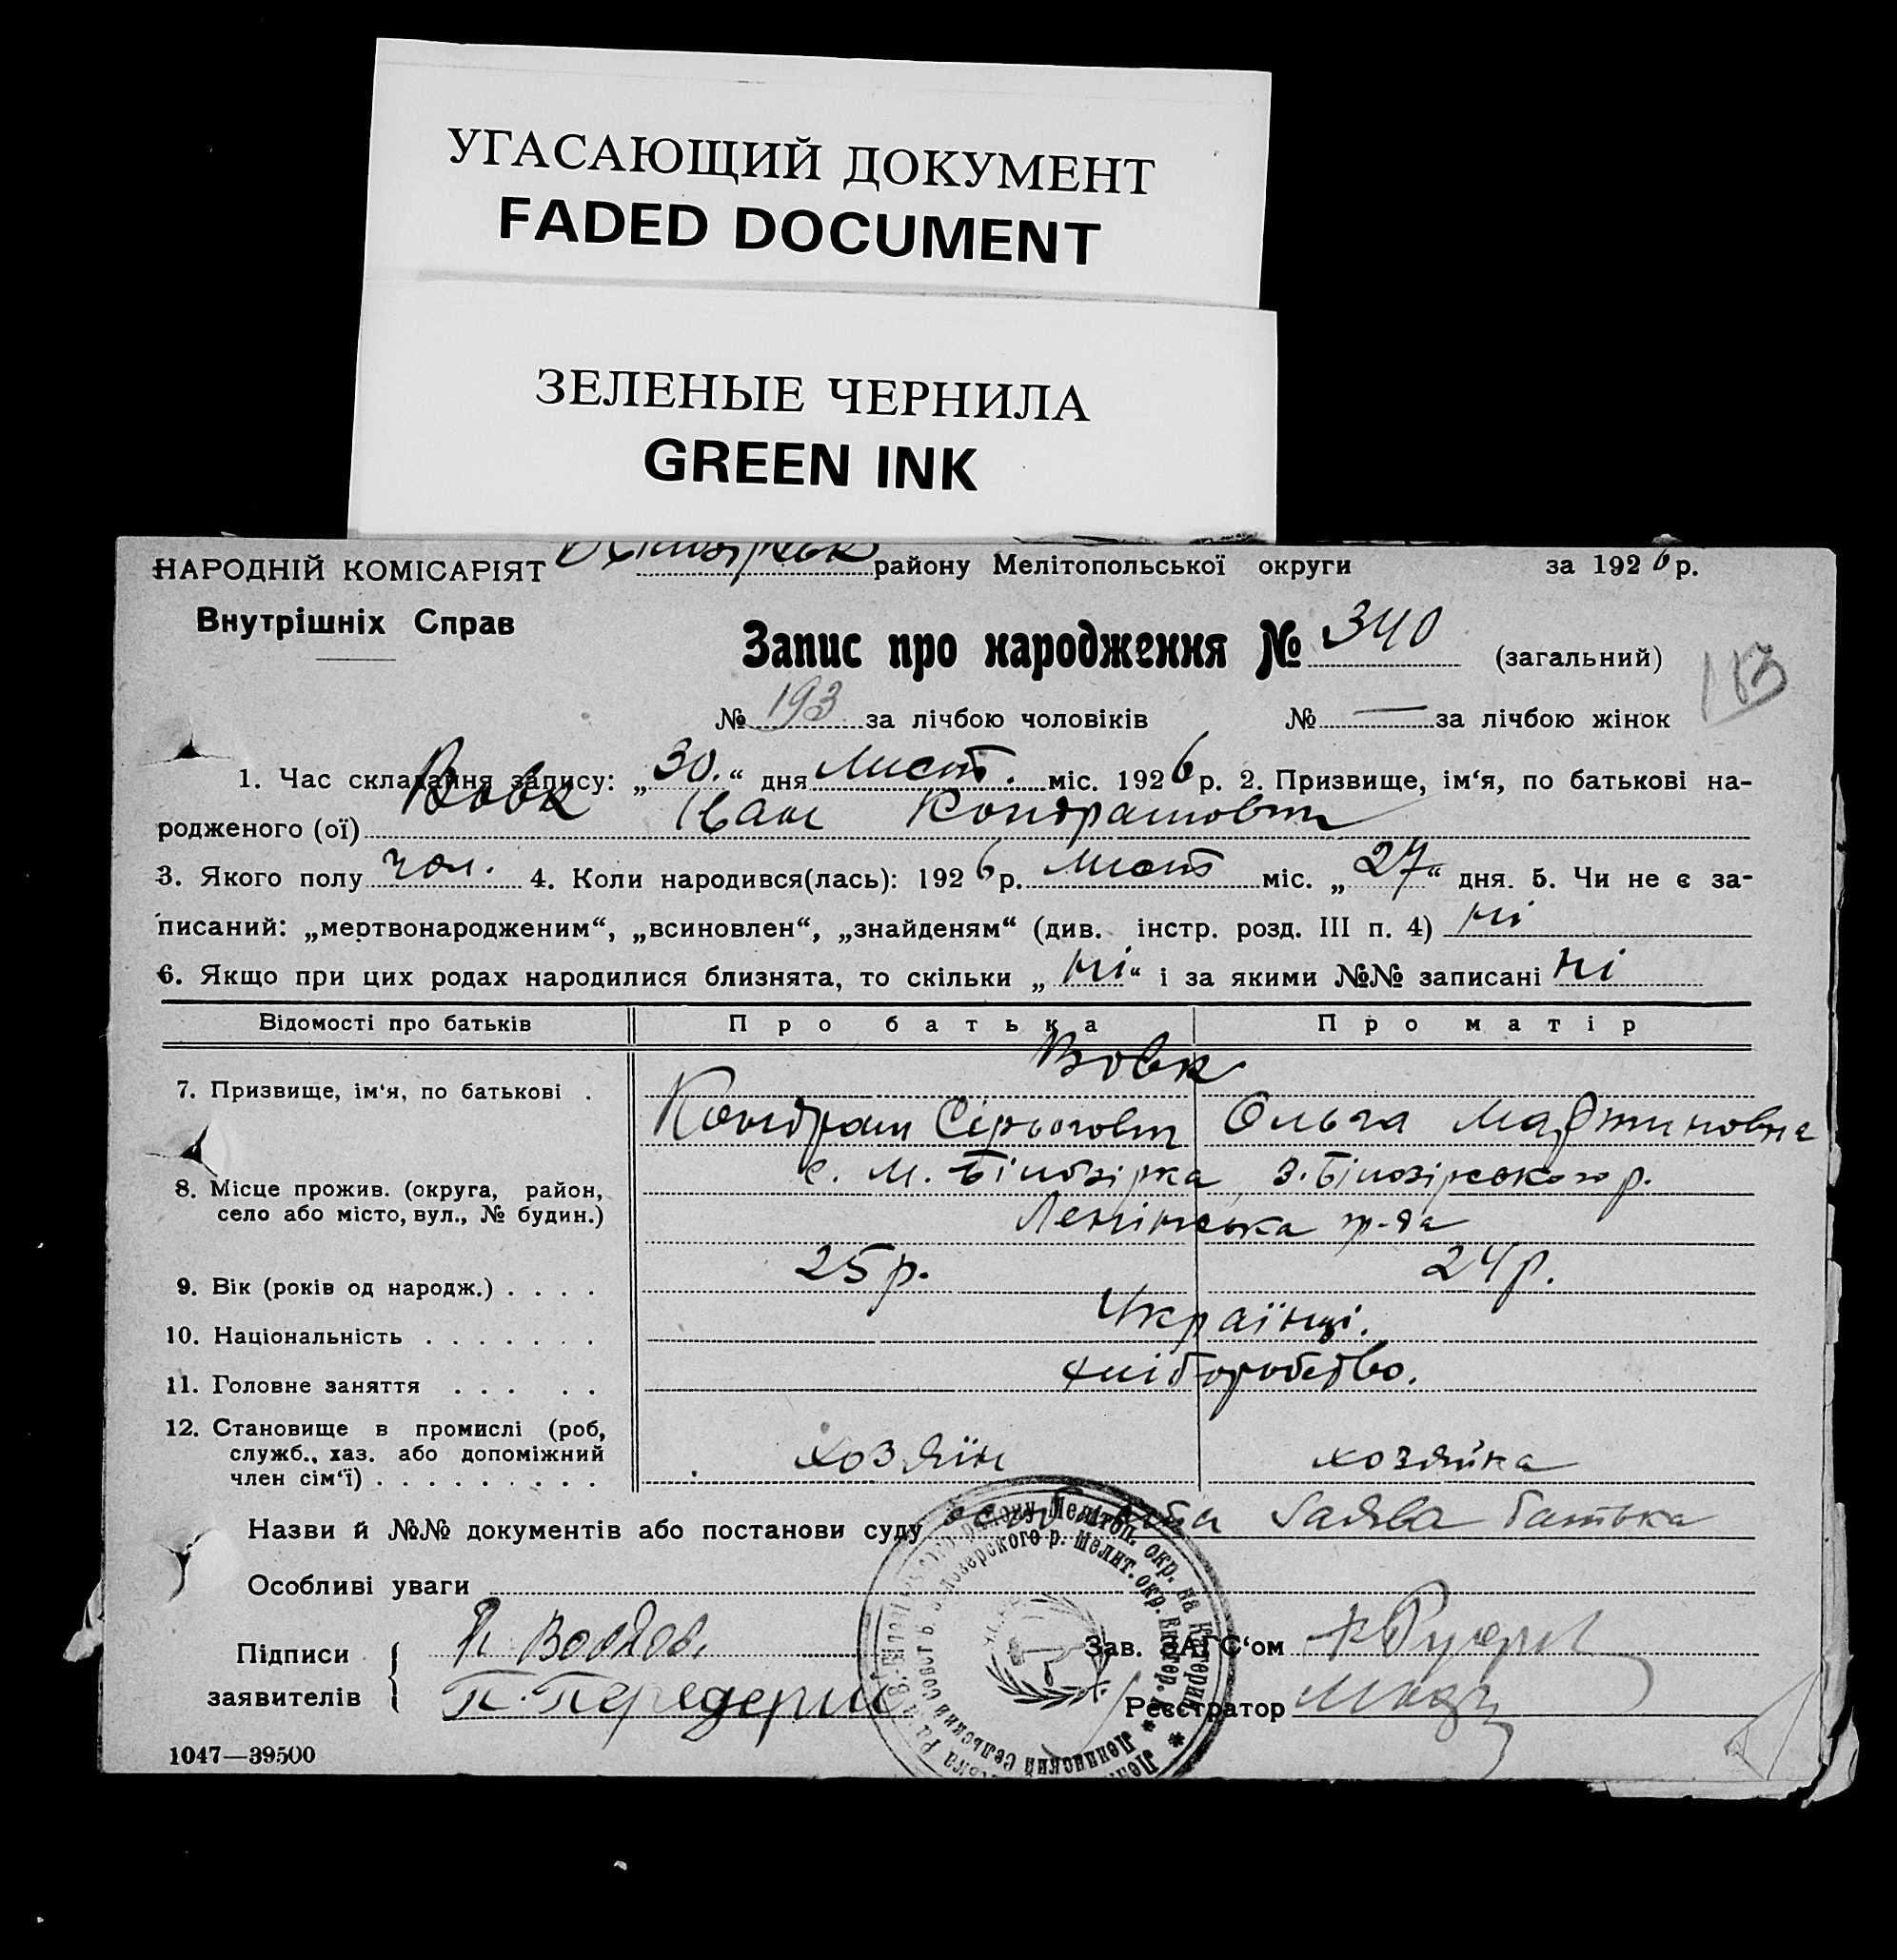 УГАСАЮЩИЙ ДОКУМЕНТ
FADED DOCUMENT
ЗЕЛЕНЫЕ ЧЕРНИЛА
GREEN INK
НАРОДНІЙ КОМІСАРІЯТ району Мелітопольської округи за 1926 р.
Внутрішніх Справ
Запис про народження № 340 (загальний)
113
№ 193 за лічбою чоловіків № — за лічбою жінок
1. Час складання запису: „30.“ дня Лист. міс. 1926 р. 2. Призвище, ім‘я, по батькові на-
родженого (ої) Вовк Іван Кондратович
3. Якого полу чол. 4. Коли народився(лась): 1926 р. Лист міс. „27“ дня. 5. Чи не є за-
писаний: „мертвонародженим“, „всиновлен“, „знайденям“ (див. інстр. розд. III п. 4) ні
6. Якщо при цих родах народилися близнята, то скільки „ні“ і за якими №№ записані ні
Відомості про батьків Про батька Про матір
Вовк
7. Призвище, ім‘я, по батькові .
Кондрат Сірьогович Ольга Мартиновна
8. Місце прожив. (округа, район, с. М. Білозірка, З. Білозірського р.
село або місто, вул., № будин.) Ленінська
9. Вік (років од народж.) . . . . 25 р. 24 р.
10. Національність . . . . . . . Українці.
11. Головне заняття . . . . . хліборобство.
12. Становище в промислі (роб,
служб., хаз. або допоміжний хозяїн хозяйка
член сім‘ї) . . . . . . . . .
Назви й №№ документів або постанови суду заява батька
Особливі уваги
Підписи Зав. ЗАГС‘ом
заявителів П. Передерий Реєстратор
1047—39500